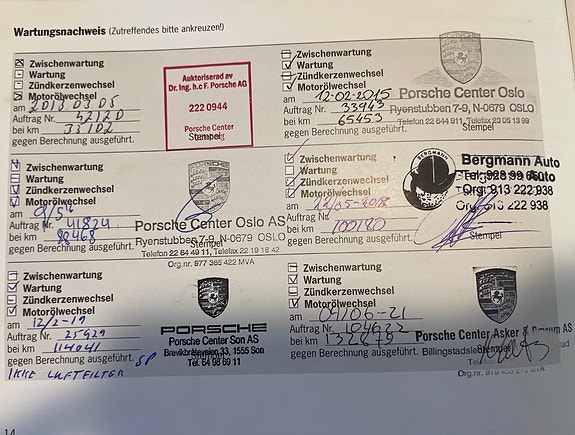 Wartungsnachweis (Zutreffendes bitte ankreuzen!)
Zwischenwartung
Wartung
Zündkerzenwechsel
Motorölwechsel
am 2013 03 05
Auftrag Nr. 42120
bei km 33102
gegen Berechnung ausgeführt.
Auktoriserad av
Dr. Ing. h.c F. Porsche AG
222 0944
Porsche Center
Stempel
Zwischenwartung
Wartung
Zündkerzenwechsel
Motorölwechsel
am 12-02-2015
Auftrag Nr. 33943
bei km 65453
gegen Berechnung ausgeführt.
Porsche Center Oslo
Ryenstubben 7-9, N-0679 OSLO
Telefon 22 644 911, Telefax 23 05 13 99
Stempel
Zwischenwartung
Wartung
Zündkerzenwechsel
Motorölwechsel
am
Auftrag Nr. 41824
bei km 88468
gegen Berechnung ausgeführt.
Porsche Center Oslo AS
Ryenstubben 7-9, N-0679 OSLO
Stempel
Telefon 22 64 49 11, Telefax 22 19 16 42
Org.nr. 977 365 422 MVA
Zwischenwartung
Wartung
Zündkerzenwechsel
Motorölwechsel
am
Auftrag Nr.
bei km 100180
gegen Berechnung ausgeführt.
BERGMANN
Bergmann Auto
Org. 913 222 938
Stempel
Zwischenwartung
Wartung
Zündkerzenwechsel
Motorölwechsel
am 12/2-19
Auftrag Nr. 25929
bei km 114041
gegen Berechnung ausgeführt.
IKKE LUFTFILTER SP
PORSCHE
Porsche Center Son AS
Brevikbråteveien 33, 1555 Son
Tel. 64 98 69 11
Zwischenwartung
Wartung
Zündkerzenwechsel
Motorölwechsel
am 04/06-21
Auftrag Nr. 104622
bei km 132679
gegen Berechnung ausgeführt.
Porsche Center Asker &
Stempel
Org.nr.
14